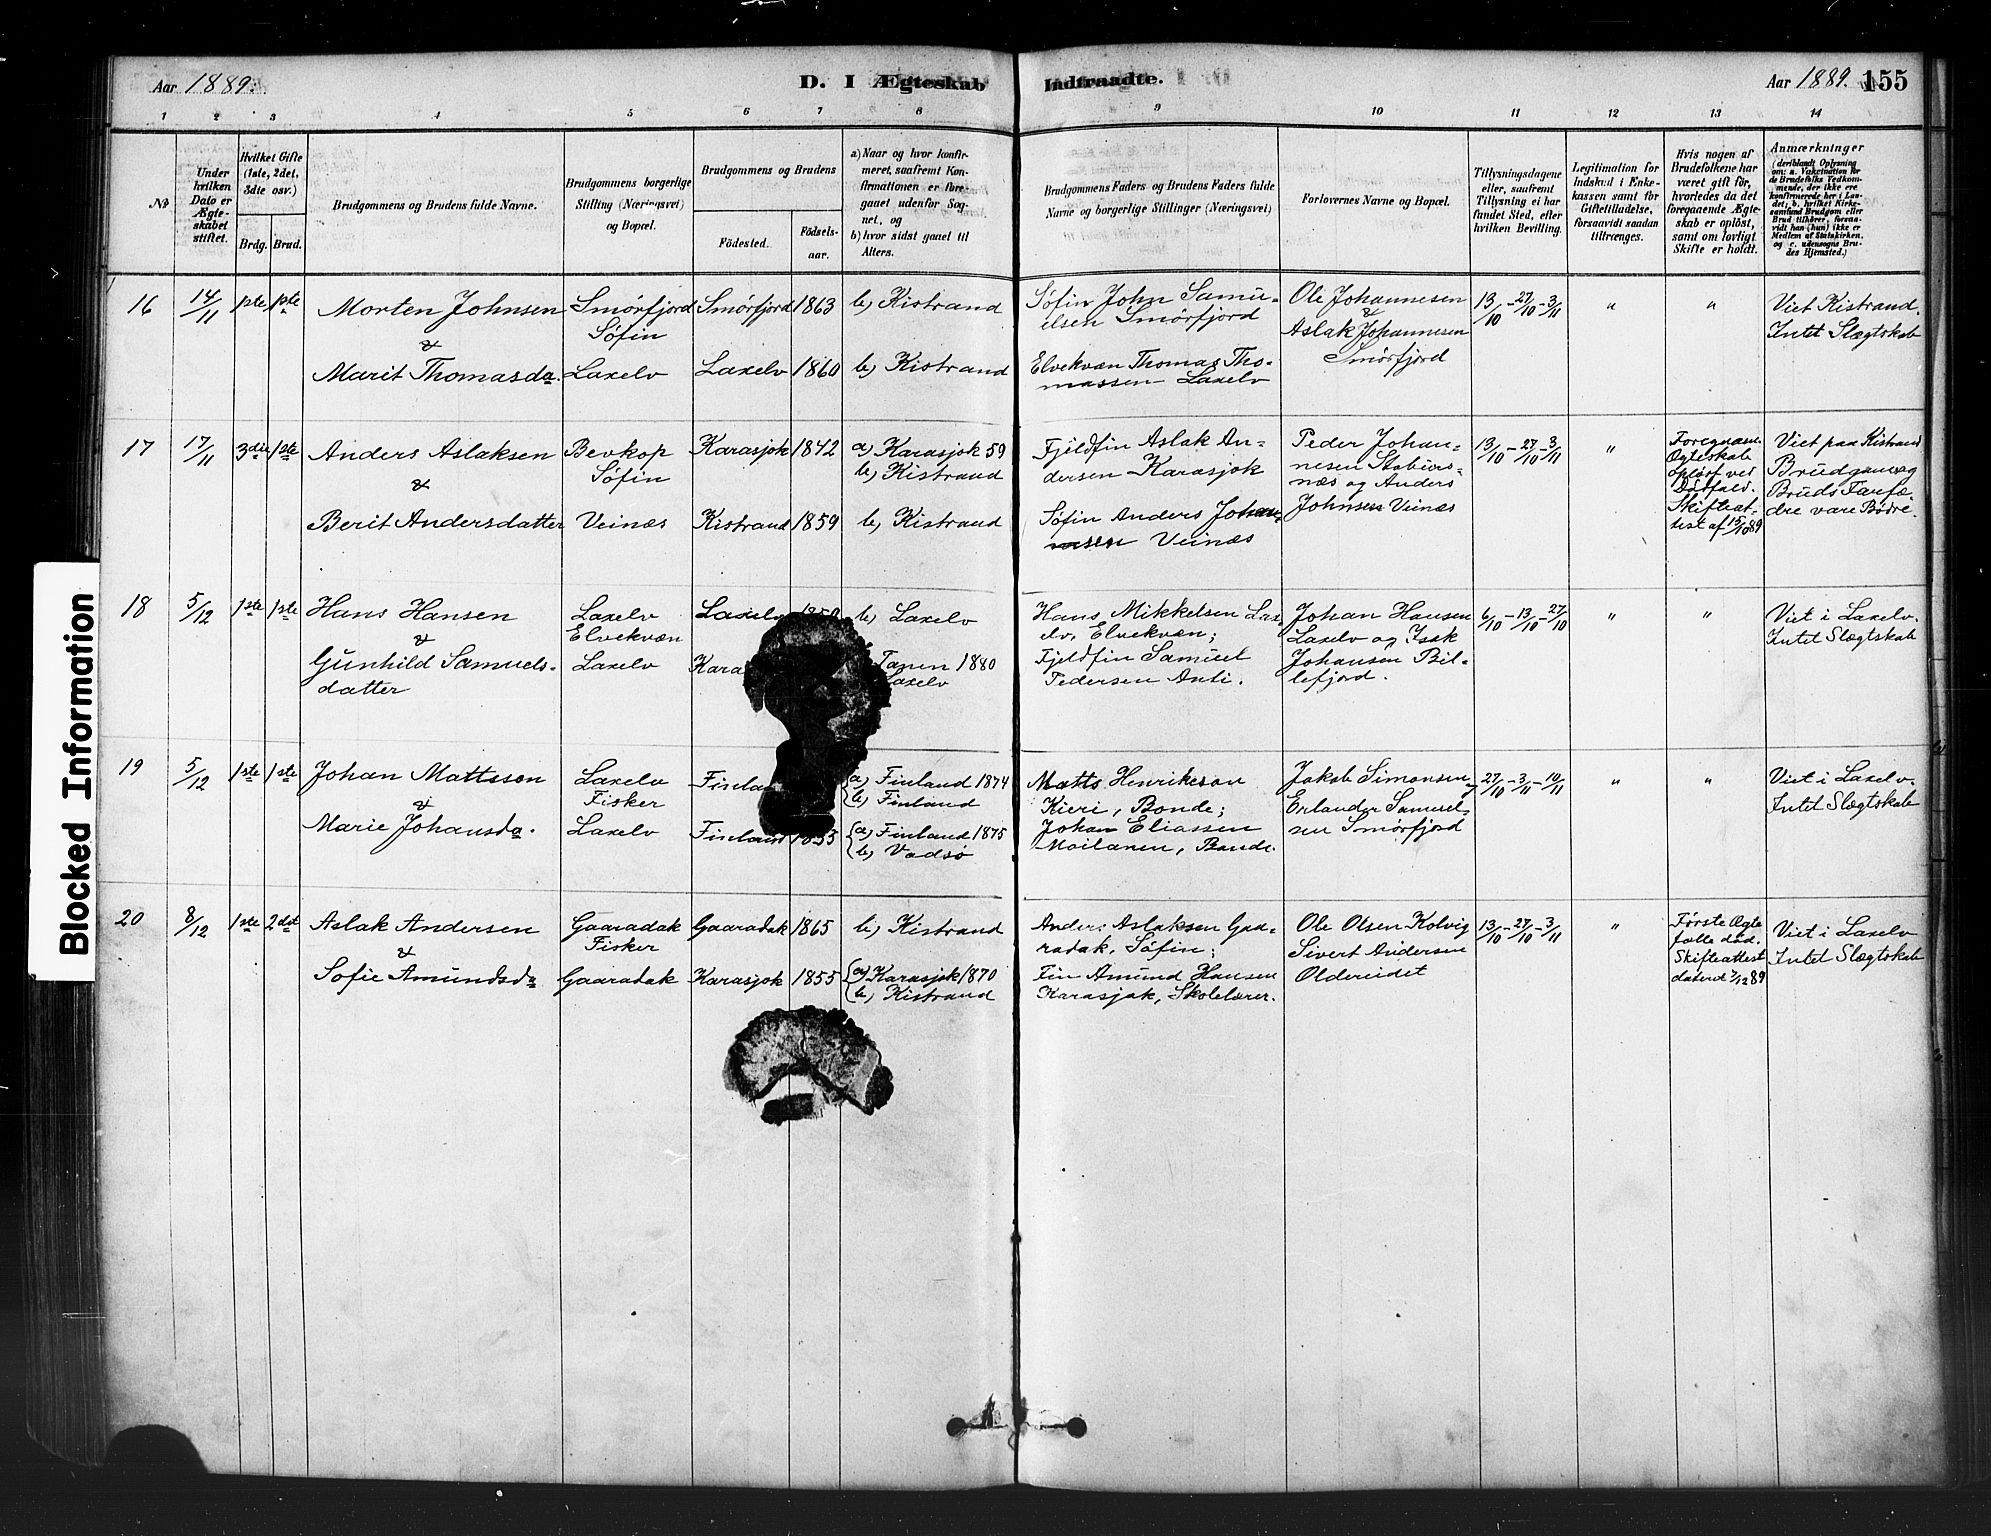 Aar 1889.
D. I Ægteskab Indtraadte.
Aar 1889. 155
1 2 3 4 5 6 7 8 9 10 11 12 13 14
№
Under hvilken Dato er Ægteskabet stiftet.
Hvilket Gifte (1ste, 2det, 3die osv.)
Brdg. Brud.
Brudgommens og Brudens fulde Navne.
Brudgommens borgerlige Stilling (Næringsvei) og Bopæl.
Brudgommens og Brudens
Födested. Födselsaar.
a) Naar og hvor konfirmeret, saafremt Konfirmationen er foregaaet udenfor Sognet, og
b) hvor sidst gaaet til Alters.
Brudgommens Faders og Brudens Faders fulde Navne og borgerlige Stillinger (Næringsvei)
Forlovernes Navne og Bopæl.
Tillysningsdagene eller, saafremt Tillysning ei har fundet Sted, efter hvilken Bevilling.
Legitimation for Indskud i Enkekassen samt for Giftetilladelse, forsaavidt saadan tiltrænges.
Hvis nogen af Brudefolkene har været gift för, hvorledes da det foregaaende Ægteskab er oplöst, samt om lovligt Skifte er holdt.
Anmærkninger
(deriblandt Oplysning om: a. Vakcination for de Brudefolks Vedkommende, der ikke ere konfirmerede her i Landet; b. hvilket Kirkesamfund Brudgom eller Brud tilhører, forsaavidt han (hun) ikke er Medlem af Statskirken, og c. udensogns Brudes Hjemsted.)
16 14/11 1ste 1ste
Morten Johnsen
&
Marit Thomasda.
Smörfjord
Søfin
Laxelv
Smörfjord 1863
Laxelv 1860
b) Kistrand
b) Kistrand
Søfin John Samu-
elsen Smörfjord
Elvekvæn Thomas Tho-
massen Laxelv
Ole Johannesen
&
Aslak Johannesen
Smörfjord
13/10 - 27/10 - 3/11
" "
Viet Kistrand.
Intet Slægtskab
17 17/11 3die 1ste
Anders Aslaksen
&
Berit Andersdatter
Bevkop
Søfin
Veinæs
Karasjok 1842
Kistrand 1859
a) Karasjok 59
b) Kistrand
b) Kistrand
Fjeldfin Aslak An-
dersen Karasjok
Søfin Anders Johan-
nesen Veinæs
Peder Johan-
nesen Staburs-
næs og Anders
Johnsen Veinæs
13/10 - 27/10 - 3/11
"
Ægteskab
opløst ved
Dödfald.
Skifteat-
test af 15/10 89
Viet paa Kistrand
Brudgom og
Bruds Farfæ-
dre vare Bødre.
18 5/12 1ste 1ste
Hans Hansen
&
Gunhild Samuels-
datter
Laxelv
Elvekvæn
Laxelv
Laxelv
Kara
b) Laxelv
Tanen 1880
Laxelv
Hans Mikkelsen Lax-
elv, Elvekvæn;
Fjeldfin Samuel
Pedersen Anti.
Johan Hansen
Laxelv og Isak
Johansen Bil-
lefjord.
6/10 - 13/10 - 27/10
" "
Viet i Laxelv.
Intet Slægtskab
19 5/12 1ste 1ste
Johan Mattsson
&
Marie Johansda.
Laxelv
Fisker
Laxelv
Finland
a) Finland 1874
b) Finland
a) Finland 1875
b) Vadsö
Matts Henrikson
Kieri, Bonde;
Johan Eliassen
Moilanen, Bonde.
Jakob Simonsen
Erlander Samuel-
sen Smörfjord
27/10 - 3/11 - 10/11
" "
Viet i Laxelv.
Intet Slægtskab
20 8/12 1ste 2det
Aslak Andersen
&
Sofie Amundsda
Gaaradak
Fisker
Gaaradak
Gaaradak 1865
Karasjok 1855
b) Kistrand
a) Karasjok 1870
b) Kistrand
Anders Aslaksen Gaa-
radak, Søfin;
Fin Amund Hansen
Karasjok, Skolelærer.
Ole Olsen Kolvig
Sivert Andersen
Oldereidet
13/10 - 27/10 - 3/11
"
Første Ægte
fælle död.
Skifteattest
dateret 7/12 89
Viet i Laxelv
Intet Slægtskab
Blocked Information